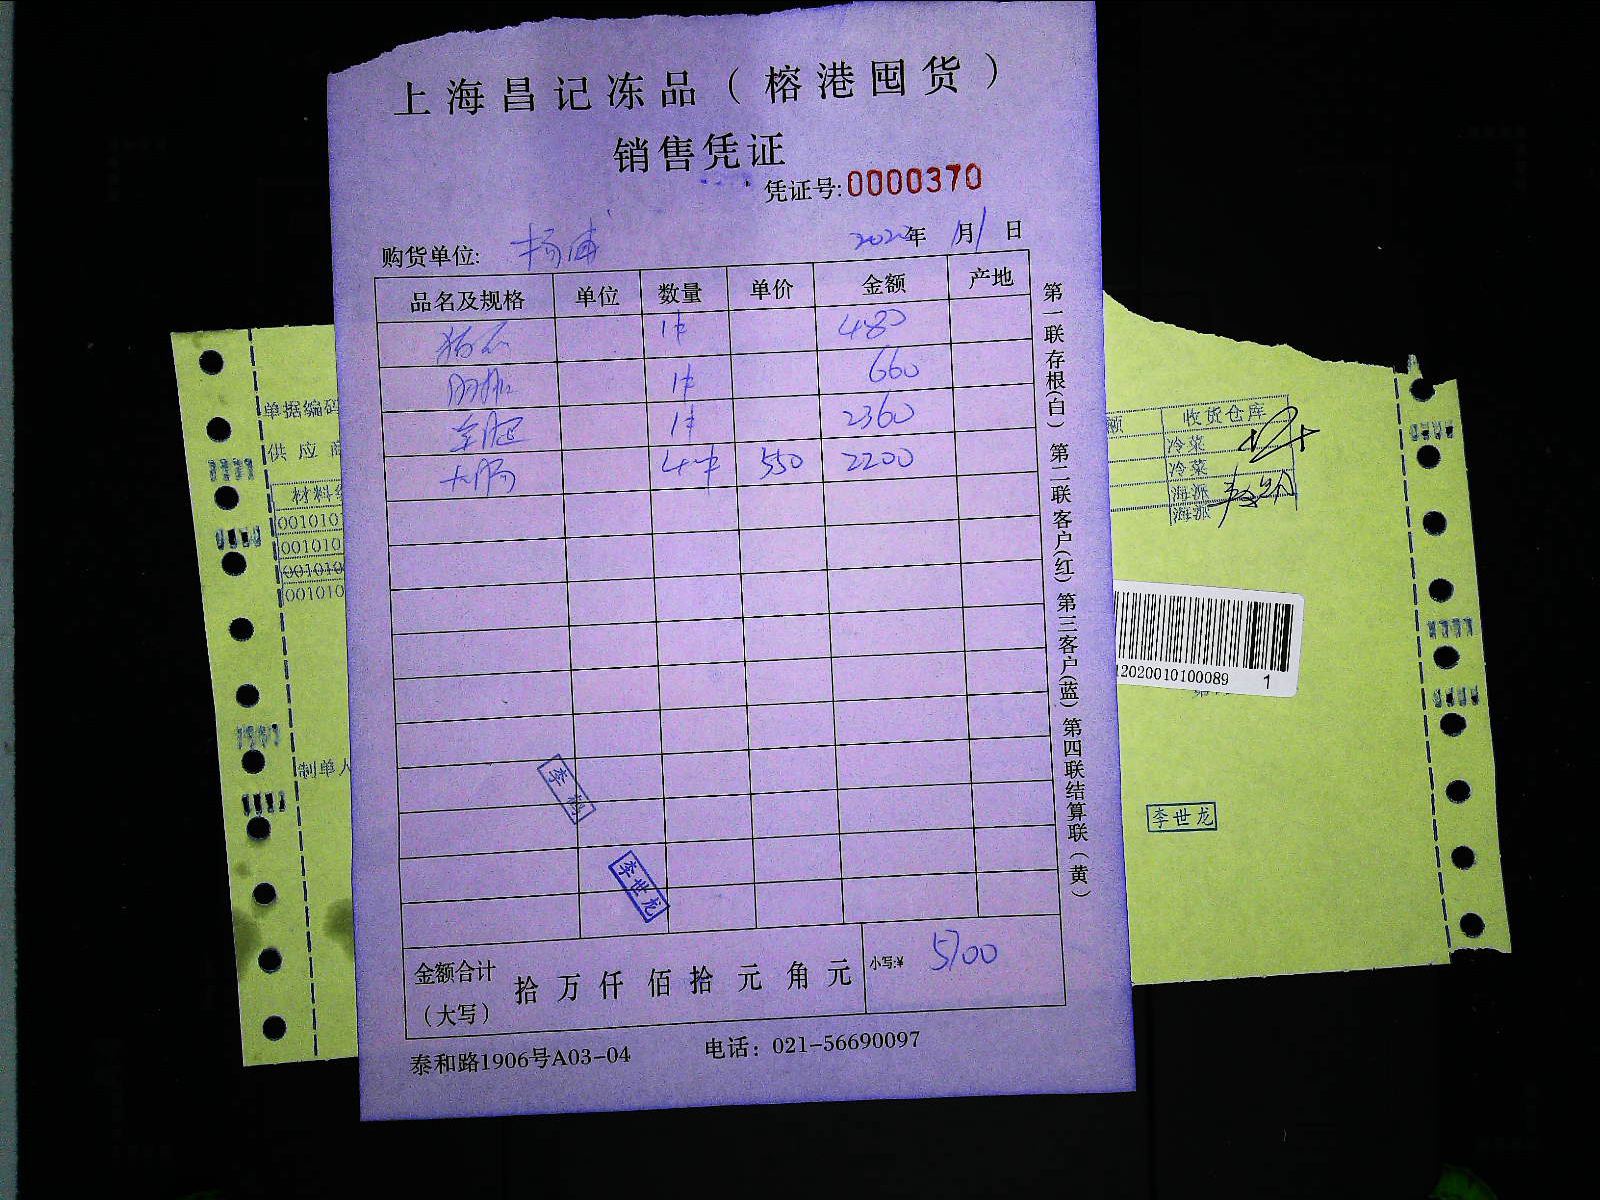 上海昌记冻品（榕港囤货）
销售凭证
凭证号:0000370
购货单位: 杨浦 2020年 1月1日
品名及规格 单位 数量 单价 金额 产地
1件 480
1件 660
1件 2360
大肠 4件 550 2200
金额合计（大写） 拾 万 仟 佰 拾 元 角 元 小写:¥ 5700
泰和路1906号A03-04 电话：021-56690097
第一联存根(白) 第二联客户(红) 第三客户(蓝) 第四联结算联（黄）
李世龙
单据编码
供应商
材料
001010
001010
001010
001010
制单人
额 收货仓库
冷菜
冷菜
海派
海派
12020010100089 1
李世龙